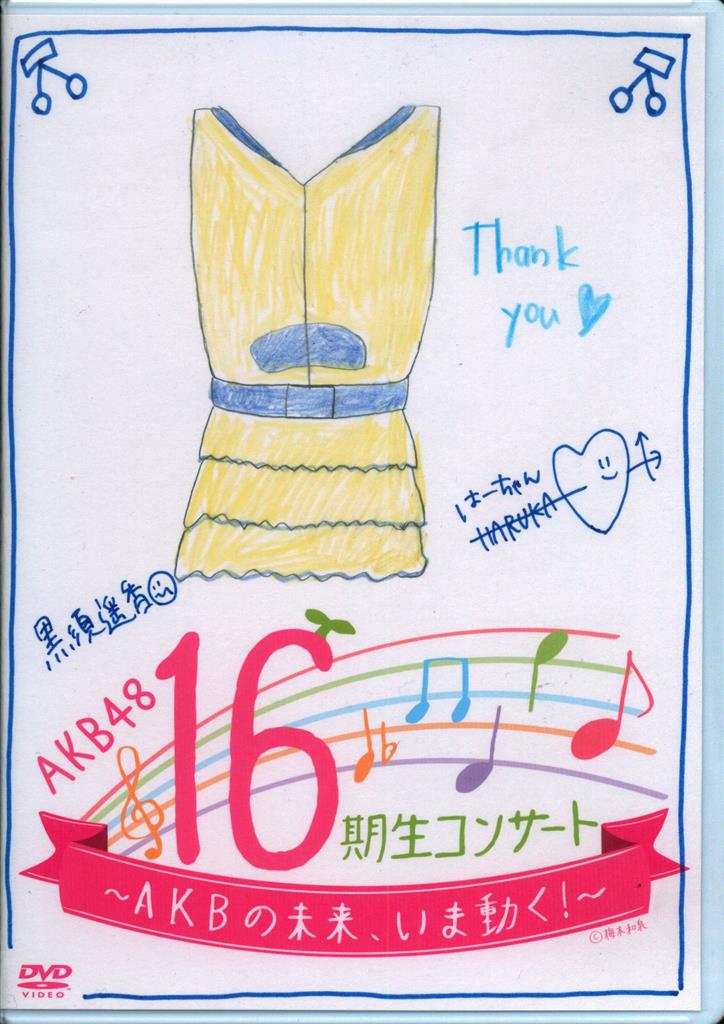 Thank
you
はーちゃん
HARUKA
黒須遥香
AKB48
16
期生コンサート
~AKBの未来、いま動く!~
©梅本和泉
DVD
VIDEO